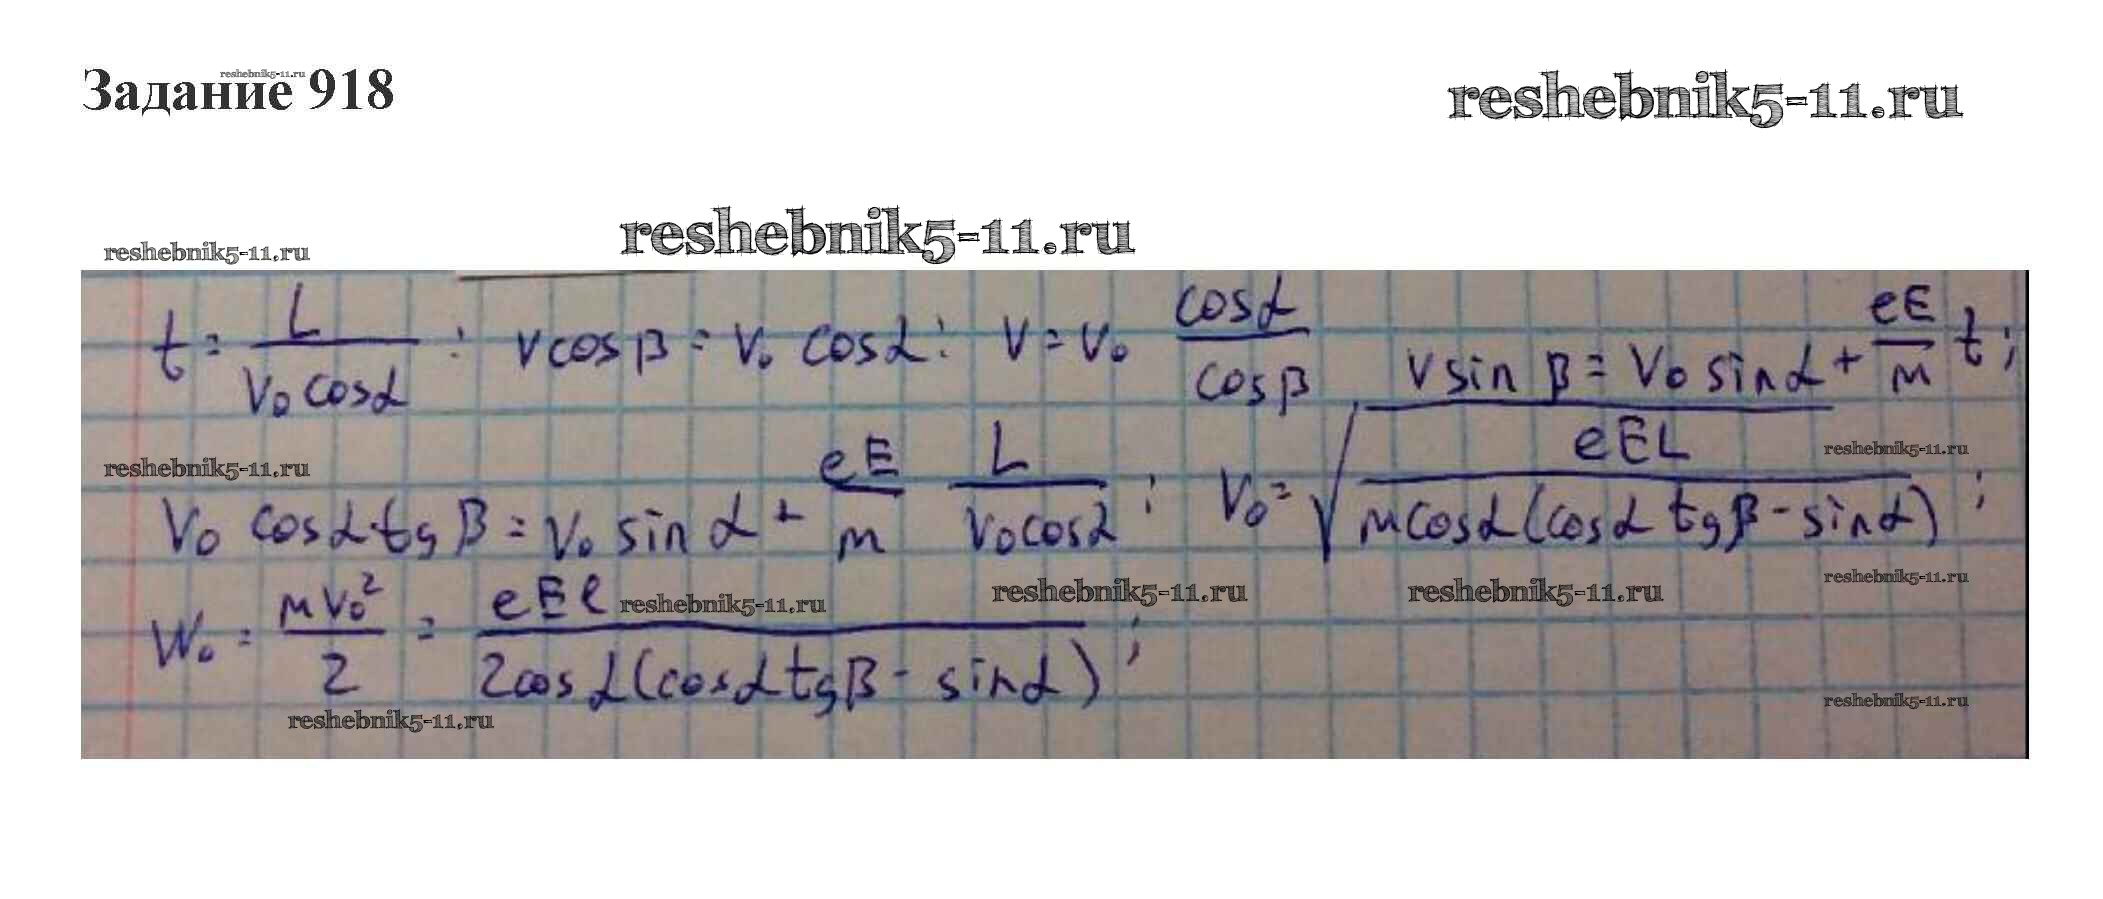 Задание 918
reshebnik5-11.ru
reshebnik5-11.ru
reshebnik5-11.ru
reshebnik5-11.ru
t = L / (v₀ cosα) ; v cos β = v₀ cosα ; v = v₀ cosα / cosβ v sin β = v₀ sinα + eE/м t ;
reshebnik5-11.ru
reshebnik5-11.ru
v₀ cosα tg β = v₀ sin α + eE/м L / (v₀ cosα) ; v₀ = √(eEL / (м cosα (cosα tgβ - sinα))) ;
reshebnik5-11.ru
reshebnik5-11.ru
reshebnik5-11.ru
reshebnik5-11.ru
W₀ = мv₀² / 2 = eEl / (2cosα (cosα tgβ - sinα)) ;
reshebnik5-11.ru
reshebnik5-11.ru